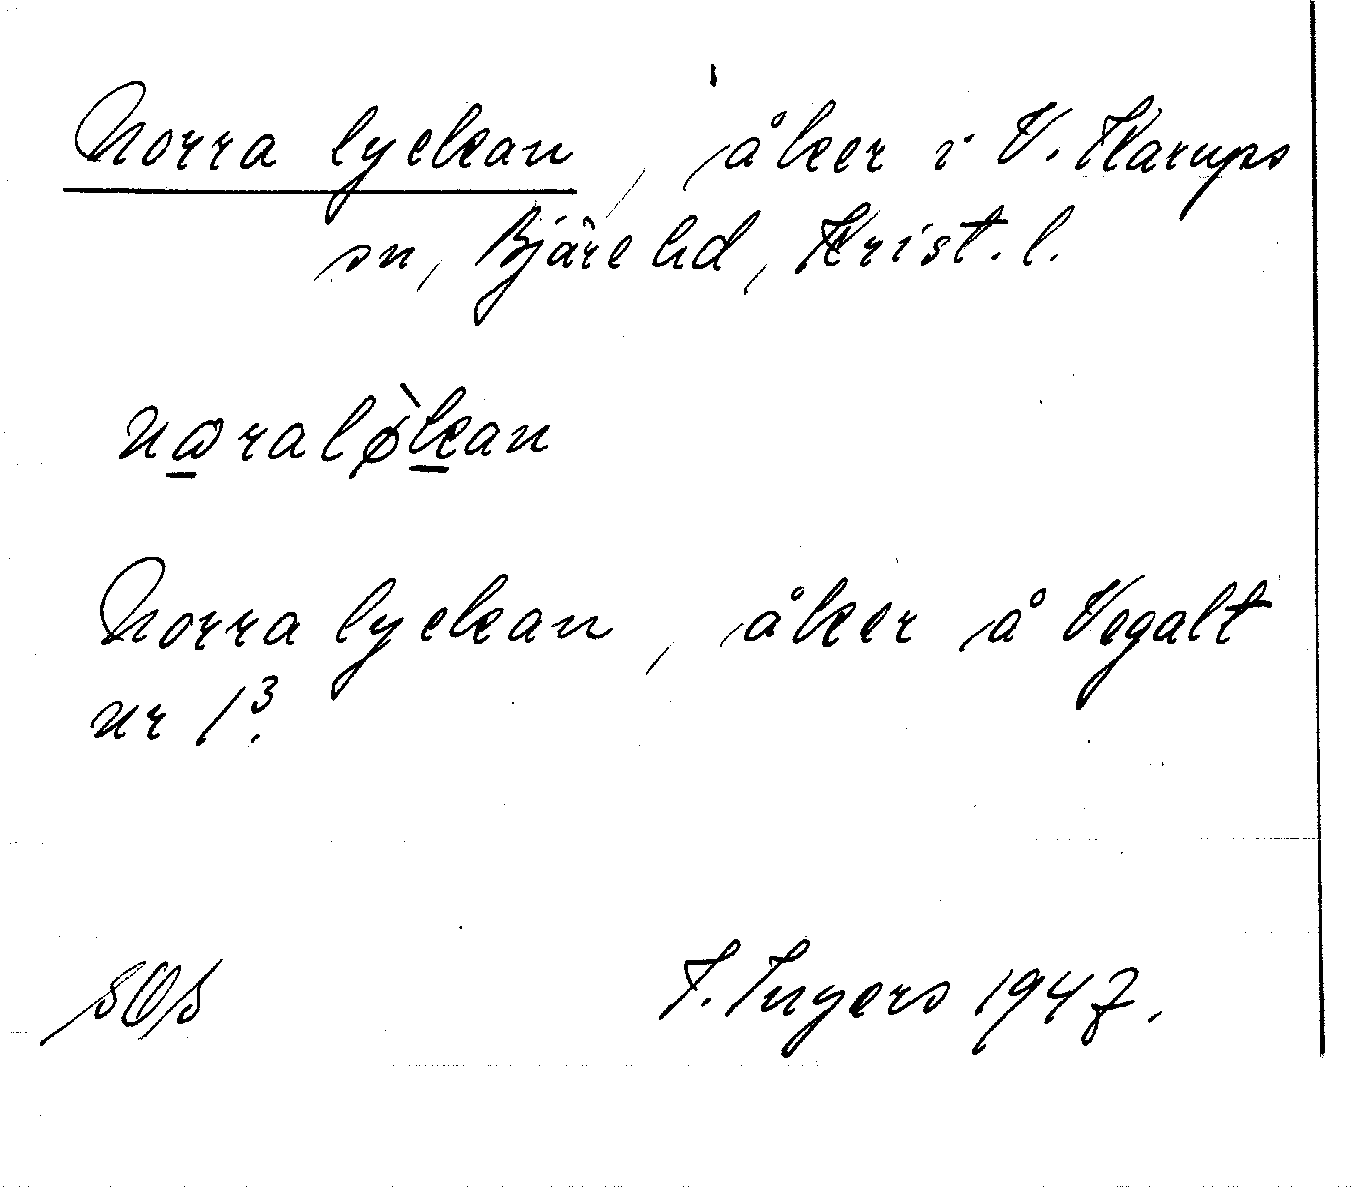 Norra lyckan, åker i V. Karups
sn, Bjäre hd, Krist. l.
nøralø̀kan
Norra lyckan, åker å Vegalt
nr 1³.
SOS I. Ingers 1947.